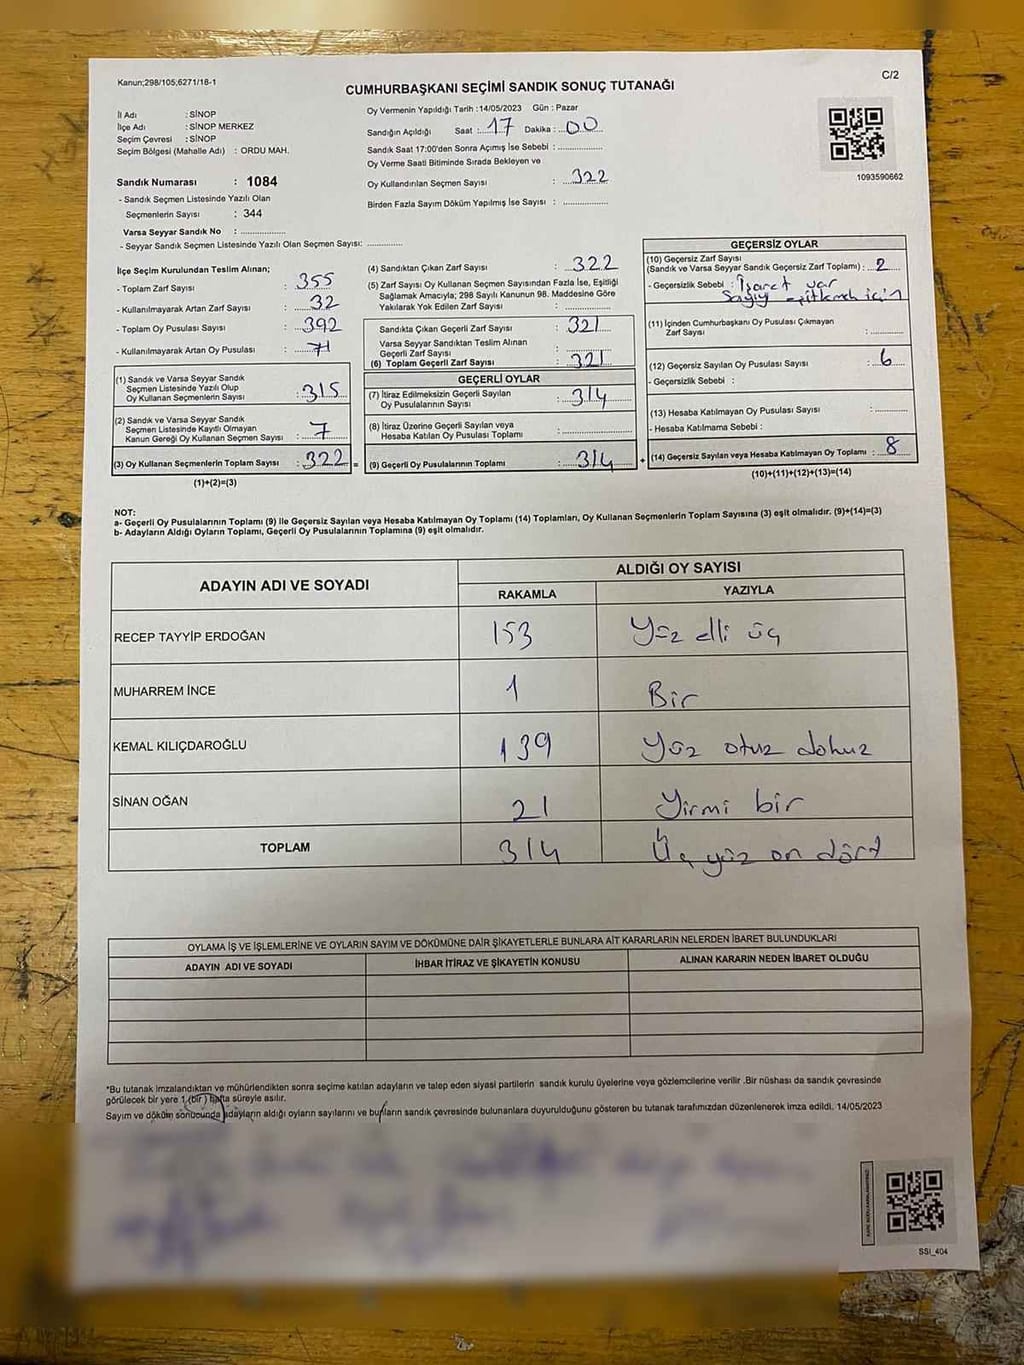 Kanun;298/105;6271/18-1
C/2
CUMHURBAŞKANI SEÇİMİ SANDIK SONUÇ TUTANAĞI
İl Adı : SİNOP
İlçe Adı : SİNOP MERKEZ
Seçim Çevresi : SİNOP
Seçim Bölgesi (Mahalle Adı) : ORDU MAH.
Sandık Numarası : 1084
- Sandık Seçmen Listesinde Yazılı Olan
Seçmenlerin Sayısı : 344
Varsa Seyyar Sandık No :
- Seyyar Sandık Seçmen Listesinde Yazılı Olan Seçmen Sayısı:
Oy Vermenin Yapıldığı Tarih :14/05/2023 Gün : Pazar
Sandığın Açıldığı Saat : 17 Dakika : 00
Sandık Saat 17:00'den Sonra Açımış İse Sebebi :
Oy Verme Saati Bitiminde Sırada Bekleyen ve
Oy Kullandırılan Seçmen Sayısı : 322
Birden Fazla Sayım Döküm Yapılmış İse Sayısı :
1093590662
İlçe Seçim Kurulundan Teslim Alınan;
- Toplam Zarf Sayısı : 355
- Kullanılmayarak Artan Zarf Sayısı : 32
- Toplam Oy Pusulası Sayısı : 392
- Kullanılmayarak Artan Oy Pusulası : 71
(1) Sandık ve Varsa Seyyar Sandık
Seçmen Listesinde Yazılı Olup
Oy Kullanan Seçmenlerin Sayısı : 315
(2) Sandık ve Varsa Seyyar Sandık
Seçmen Listesinde Kayıtlı Olmayan
Kanun Gereği Oy Kullanan Seçmen Sayısı : 7
(3) Oy Kullanan Seçmenlerin Toplam Sayısı : 322 =
(1)+(2)=(3)
(4) Sandıktan Çıkan Zarf Sayısı : 322
(5) Zarf Sayısı Oy Kullanan Seçmen Sayısından Fazla İse, Eşitliği
Sağlamak Amacıyla; 298 Sayılı Kanunun 98. Maddesine Göre
Yakılarak Yok Edilen Zarf Sayısı :
Sandıkta Çıkan Geçerli Zarf Sayısı : 321
Varsa Seyyar Sandıktan Teslim Alınan
Geçerli Zarf Sayısı :
(6) Toplam Geçerli Zarf Sayısı : 321
GEÇERLİ OYLAR
(7) İtiraz Edilmeksizin Geçerli Sayılan
Oy Pusulalarının Sayısı : 314
(8) İtiraz Üzerine Geçerli Sayılan veya
Hesaba Katılan Oy Pusulaları Toplamı :
(9) Geçerli Oy Pusulalarının Toplamı : 314 +
GEÇERSİZ OYLAR
(10) Geçersiz Zarf Sayısı
(Sandık ve Varsa Seyyar Sandık Geçersiz Zarf Toplamı) : 2
- Geçersizlik Sebebi : İşaret var
Sayıyı eşitlemek için
(11) İçinden Cumhurbaşkanı Oy Pusulası Çıkmayan
Zarf Sayısı :
(12) Geçersiz Sayılan Oy Pusulası Sayısı : 6
- Geçersizlik Sebebi :
(13) Hesaba Katılmayan Oy Pusulası Sayısı :
- Hesaba Katılmama Sebebi :
(14) Geçersiz Sayılan veya Hesaba Katılmayan Oy Toplamı : 8
(10)+(11)+(12)+(13)=(14)
NOT:
a- Geçerli Oy Pusulalarının Toplamı (9) ile Geçersiz Sayılan veya Hesaba Katılmayan Oy Toplamı (14) Toplamları, Oy Kullanan Seçmenlerin Toplam Sayısına (3) eşit olmalıdır. (9)+(14)=(3)
b- Adayların Aldığı Oyların Toplamı, Geçerli Oy Pusulalarının Toplamına (9) eşit olmalıdır.
ADAYIN ADI VE SOYADI ALDIĞI OY SAYISI
RAKAMLA YAZIYLA
RECEP TAYYİP ERDOĞAN 153 Yüz elli üç
MUHARREM İNCE 1 Bir
KEMAL KILIÇDAROĞLU 139 Yüz otuz dokuz
SİNAN OĞAN 21 Yirmi bir
TOPLAM 314 Üç yüz on dört
OYLAMA İŞ VE İŞLEMLERİNE VE OYLARIN SAYIM VE DÖKÜMÜNE DAİR ŞİKAYETLERLE BUNLARA AİT KARARLARIN NELERDEN İBARET BULUNDUKLARI
ADAYIN ADI VE SOYADI İHBAR İTİRAZ VE ŞİKAYETİN KONUSU ALINAN KARARIN NEDEN İBARET OLDUĞU
*Bu tutanak imzalandıktan ve mühürlendikten sonra seçime katılan adayların ve talep eden siyasi partilerin sandık kurulu üyelerine veya gözlemcilerine verilir .Bir nüshası da sandık çevresinde
görülecek bir yere 1 (bir ) hafta süreyle asılır.
Sayım ve döküm sonucunda adayların aldığı oyların sayılarını ve bunların sandık çevresinde bulunanlara duyurulduğunu gösteren bu tutanak tarafımızdan düzenlenerek imza edildi. 14/05/2023
SSİ_404